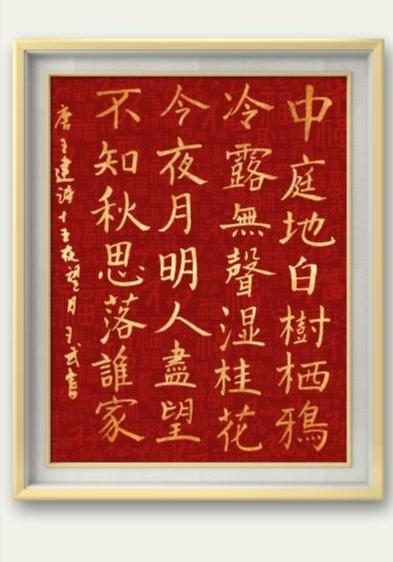 中庭地白樹栖鴉
冷露無聲湿桂花
今夜月明人盡望
不知秋思落誰家
唐王建诗十五夜望月 王武書